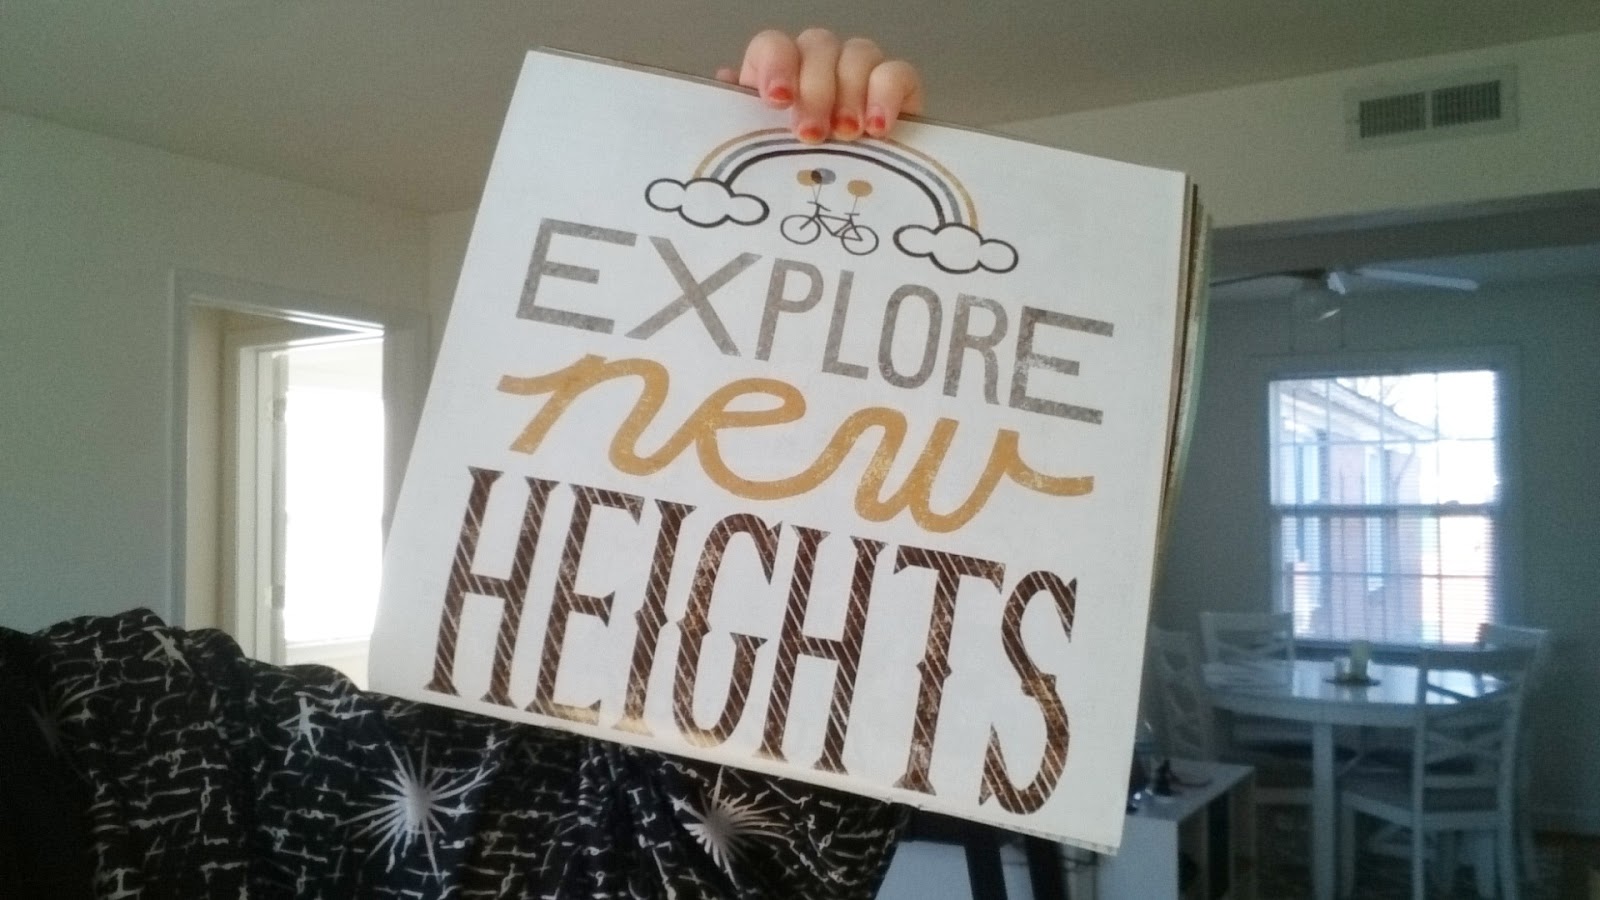 EXPLORE
new
HEIGHTS